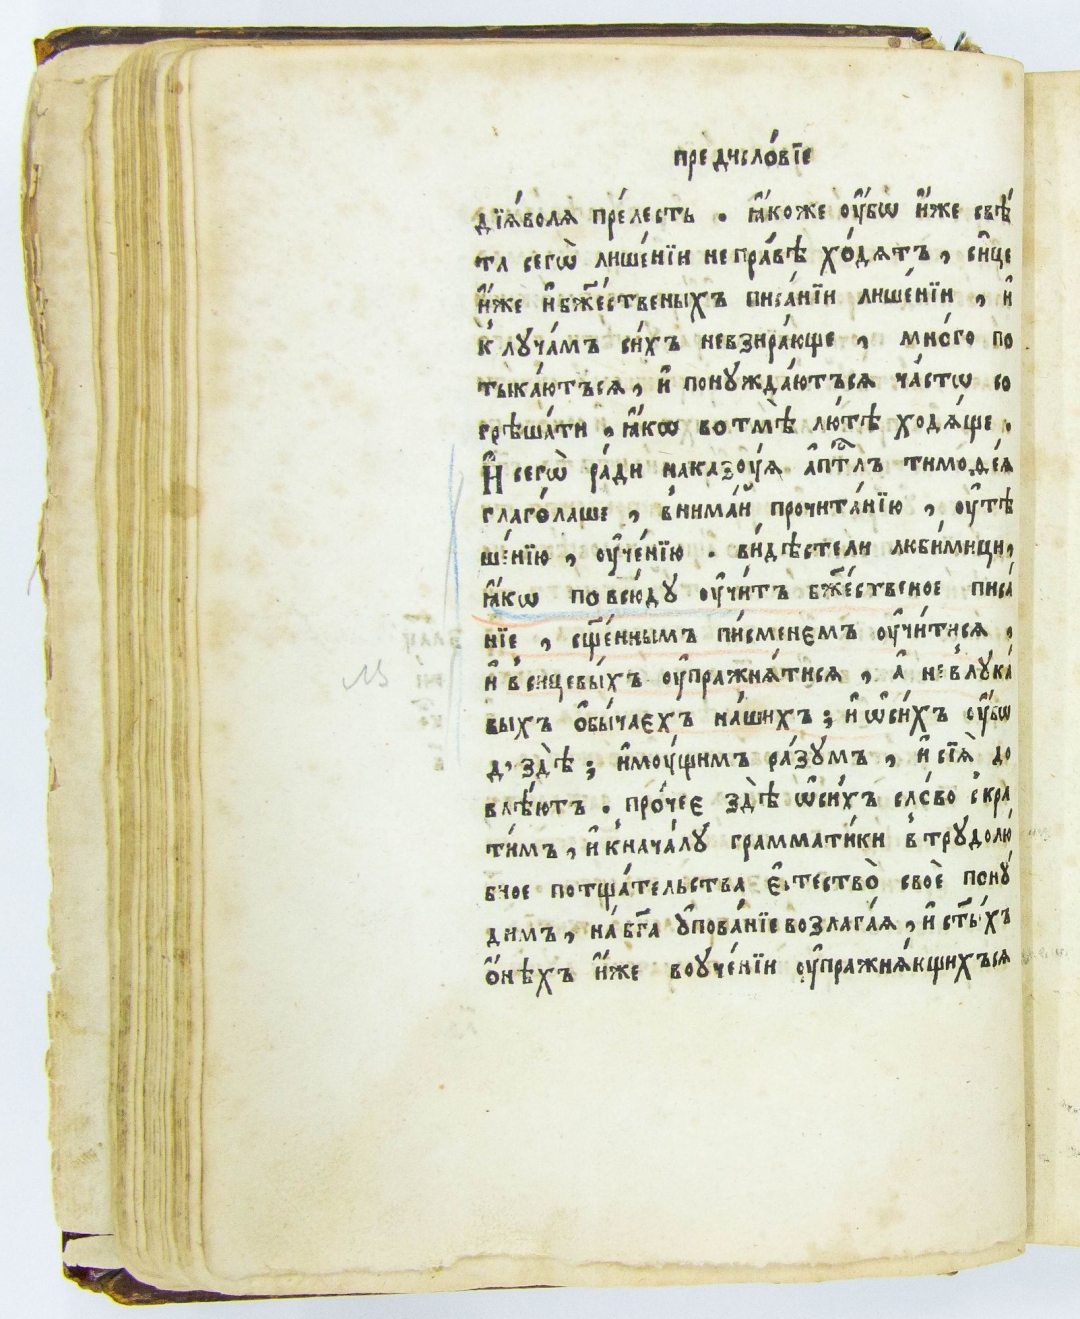 предисло́вїе
дїѧ́волѧ пре́лесть . ꙗ҆́коже оу҆́бѡ и҆́же свѣ́
та сегѡ̀ лише́нїи не пра́вѣ хо́дѧтъ , си́це
и҆́же и҆ бж҃е́ственыхъ писа́нїи лише́нїи , и҆
к лꙋча́мъ си́хъ невзира́юще , мно́го по
тыка́ютъсѧ , и҆ понꙋжда́ютъсѧ ча́стѡ со
грѣша́ти , ꙗ҆́кѡ во тмѣ̀ лю́тѣ ходѧ́ще .
И҆ сегѡ̀ ра́ди наказоу́ѧ а҆пⷭ҇тлъ тимоѳе́ѧ
глаго́лаше , внима́й прочита́нїю , оу҆тѣ
ше́нїю , оу҆че́нїю . ви́дѣстели люби́мици ,
ꙗ҆́кѡ повсю́дꙋ оу҆чи́тъ бж҃е́ственое писа́
нїе , сщ҃е́ннымъ пи́сменємъ оу҆чи́тисѧ ,
и҆ в сицевы́хъ оу҆пражнѧ́тисѧ , а҆ не в лꙋка́
выхъ ѻ҆бы́чаєхъ на́шихъ ; и҆ ѡ҆ си́хъ оу҆́бѡ
до здѣ̀ ; и҆моу́щимъ ра́зꙋмъ , и҆ сїѧ̀ до
влѣ́ютъ . про́чеє здѣ̀ ѡ҆ си́хъ сло́во скра
ти́мъ , и҆ к нача́лꙋ грамма́тики в трꙋдолю́
бное потща́тельства є҆стество̀ своѐ понꙋ́
димъ , на́ бг҃а ᲂу҆пова́нїе возлага́ѧ , и҆ ст҃ы́хъ
ѻ҆́нѣхъ и҆́же во ᲂуче́нїи оу҆пражнѧ́ющихъсѧ